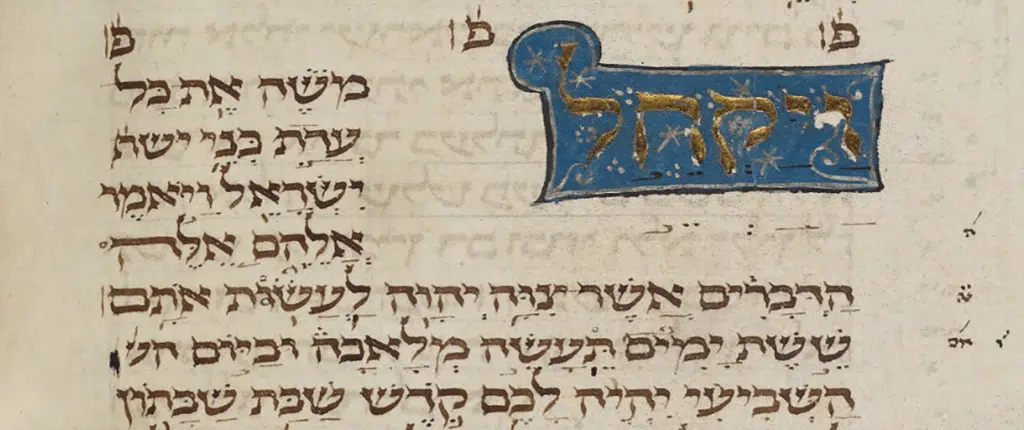 פ פ פ
ויקהל
מֹשֶׁה אֶת כָּל
עֲדַת בְּנֵי
יִשְׂרָאֵל וַיֹּאמֶר
אֲלֵהֶם אֵלֶּה
הַדְּבָרִים אֲשֶׁר צִוָּה יְהוָה לַעֲשֹׂת אֹתָם
שֵׁשֶׁת יָמִים תֵּעָשֶׂה מְלָאכָה וּבַיּוֹם הש
הַשְּׁבִיעִי יִהְיֶה לָכֶם קֹדֶשׁ שַׁבַּת שַׁבָּתוֹן